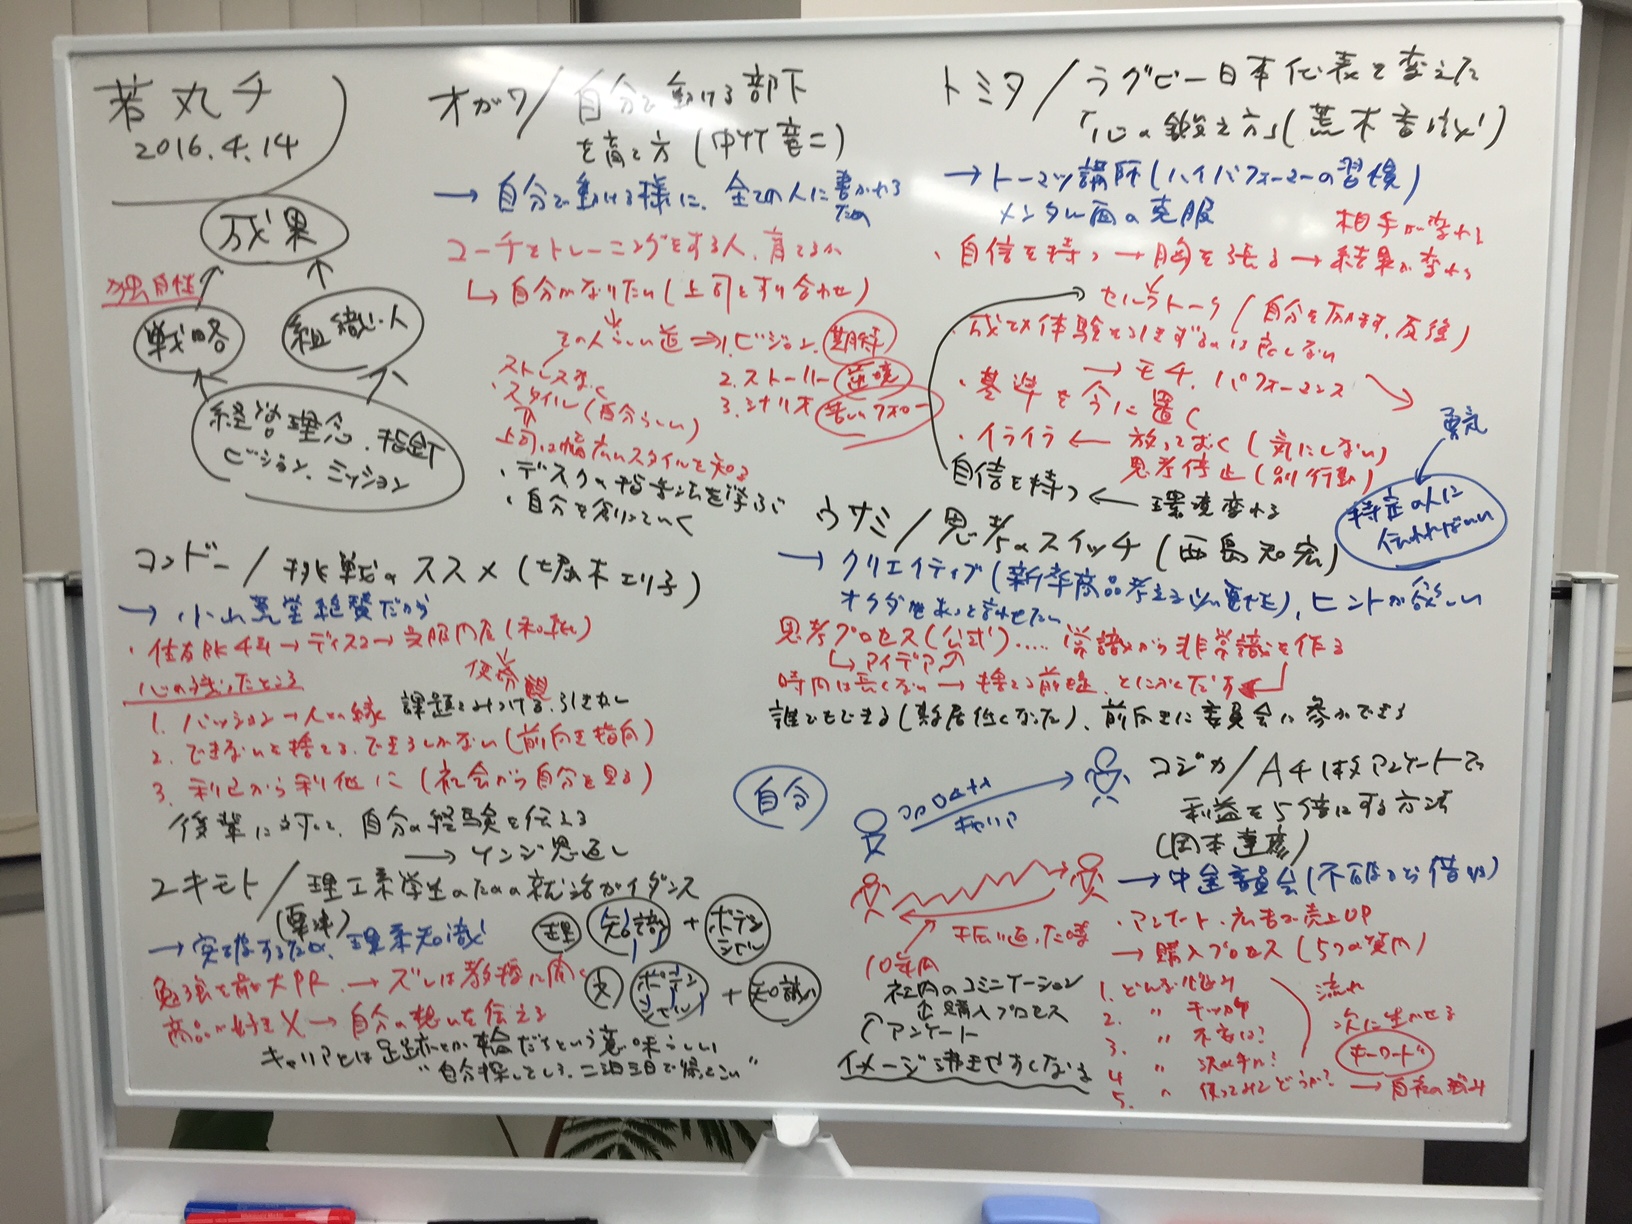 若丸チ
2016.4.14
成果
独自性
戦略
組織・人
経営理念.指針
ビジョン、ミッション
オガワ/自分で動ける部下
を育て方(中竹竜二)
→自分で動ける様に、全ての人に書かれる
ため
コーチをトレーニングをする人、育てるか
↳自分がなりたい(上司とすり合わせ)
その人らしい道⇒1.ビジョン、期待
2.ストーリー 逆境
3.シナリオ 苦しいフォロー
ストレスなく
・スタイル(自分らしい)
上司は幅広いスタイルを知る
・ディスクの指導法を学ぶ
・自分を創っていく
トミタ/ラグビー日本代表を変えた
「心の鍛え方」(荒木香織)
→トーマツ講師(ハイパフォーマーの習慣)
メンタル面の克服
相手が変わる
・自信を持つ→胸を張る→結果が変わる
セルフトーク/自分を励ます、反復)
・成功体験を引きずるのは良くない
→モチ、パフォーマンス
・基準を今に置く
・イライラ←放っておく(気にしない)
思考停止(別行動)
自信を持つ←環境変わる
勇気
特定の人に
伝わればいい
コンドー/挑戦のススメ(堀木エリ子)
→小山薫堂絶賛だから
・住友BK4年→ディスコ→呉服問屋(和紙)
使命観
心に残ったところ
1. パッション→人との縁 課題をみつける、引き出し
2. できないを捨てる、できるしかない(前向き指向)
3. 利己から利他に(社会から自分を見る)
後輩に対して、自分の経験を伝える
→ケンジ恩返し
ウサミ/思考のスイッチ(西島知宏)
→クリエイティブ(新幸商品考える必要性)、ヒントが欲しい
オクダをあっと言わせたい
思考プロセス(公式).....常識から非常識を作る
↳アイデアの
時間は長くない→捨てる前提、とにかくだす
誰でもできる(敷居低くなった)、前向きに委員会に参加できる
自分
コジカ/A4 1枚アンケートで
利益を5倍にする方法
(岡本達彦)
キャリア
→中金委員会(不破から借りる)
・アンケート・広告で売上UP
→購入プロセス(5つの質問)
1. どんな悩み
2. 〃 チッカケ
3. 〃 不安は?
4 〃 決め手は?
5. 〃 使ってみてどうか?→自社の強み
流れ
次に生かせる
キーワード
手伝い返した時
10年内
社内のコミニケーション
企購入プロセス
アンケート
イメージ沸きやすくなる
ユキモト/理工系学生のための就活ガイダンス
→突破するため、理系知識
理 知識 + ポテンシャル
文 ポテンシャル + 知識
勉強を前大PR.→ズレは教授に聞く
商品が好き×→自分の想いを伝える
キャリアとは足跡とか輪だちという意味らしい
“自分探してしろ、二泊三日で帰ってこい”